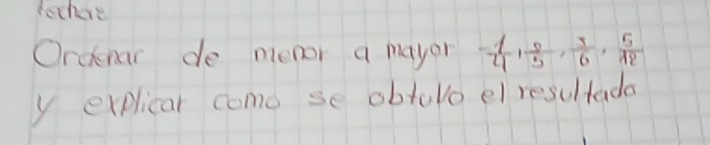 Ordenar de menor a mayor 1/4, 2/3, 3/6, 5/12
y explicar como se obtuvo el resultado